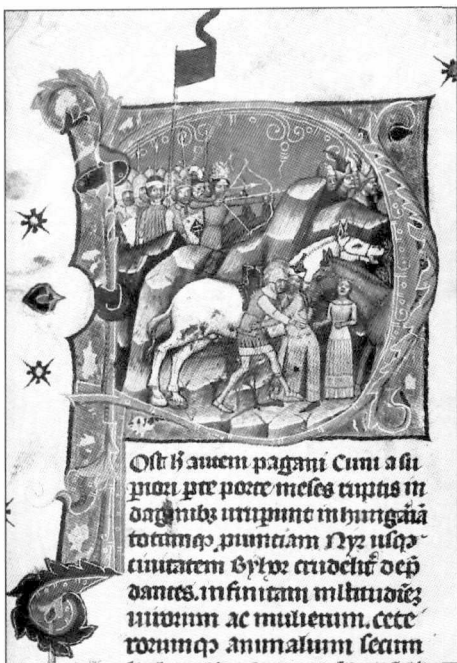 Post h̄ autem pagani Cuni a su
ꝑiori ꝑte porte meses ruptis in
daginibꝫ irruꝑunt in hungaiā
totamqꝫ ꝓuinciam Nyr usqꝫ
ciuitatem Byhor crudelit̄ dep̄
dantes. infinitam ml̄titudiēꝫ
uirorum ac mulierum. cete
rorumqꝫ animalium secum